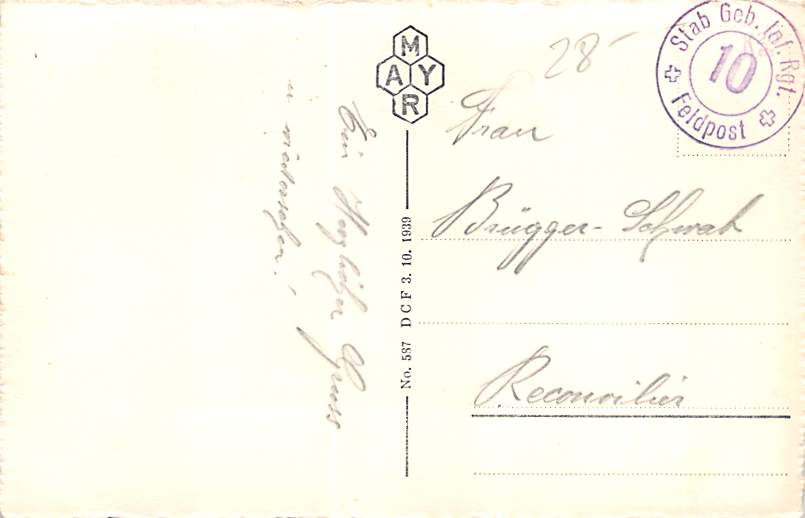 Ein Herzlicher Gruss
u wiedersehen!
MAYR
No. 587 DCF 3. 10. 1939
28-
Stab Geb. Inf. Rgt.
10
Feldpost
Frau
Brügger-Schwab
Reconvilier